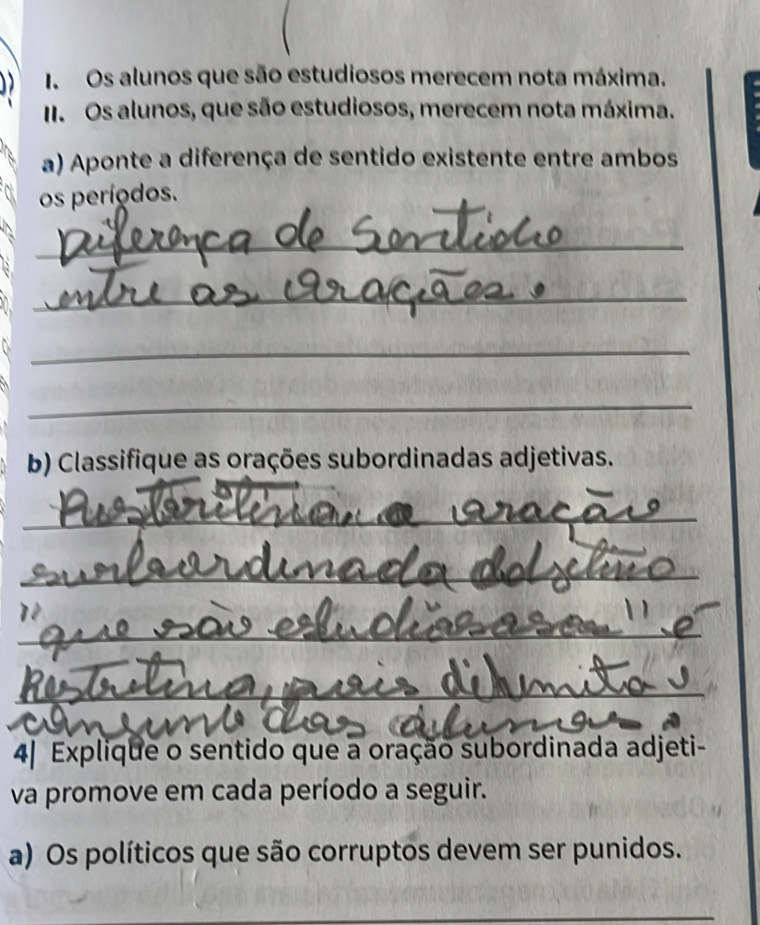 I. Os alunos que são estudiosos merecem nota máxima.
II. Os alunos, que são estudiosos, merecem nota máxima.
a) Aponte a diferença de sentido existente entre ambos
os períodos.
Diferença de Sentido
entre as orações.
b) Classifique as orações subordinadas adjetivas.
Restritiva, a oração
surbordinada
"que são" é
Restritiva, pois delimita o
conjunto dos alunos.
4| Explique o sentido que a oração subordinada adjeti-
va promove em cada período a seguir.
a) Os políticos que são corruptos devem ser punidos.